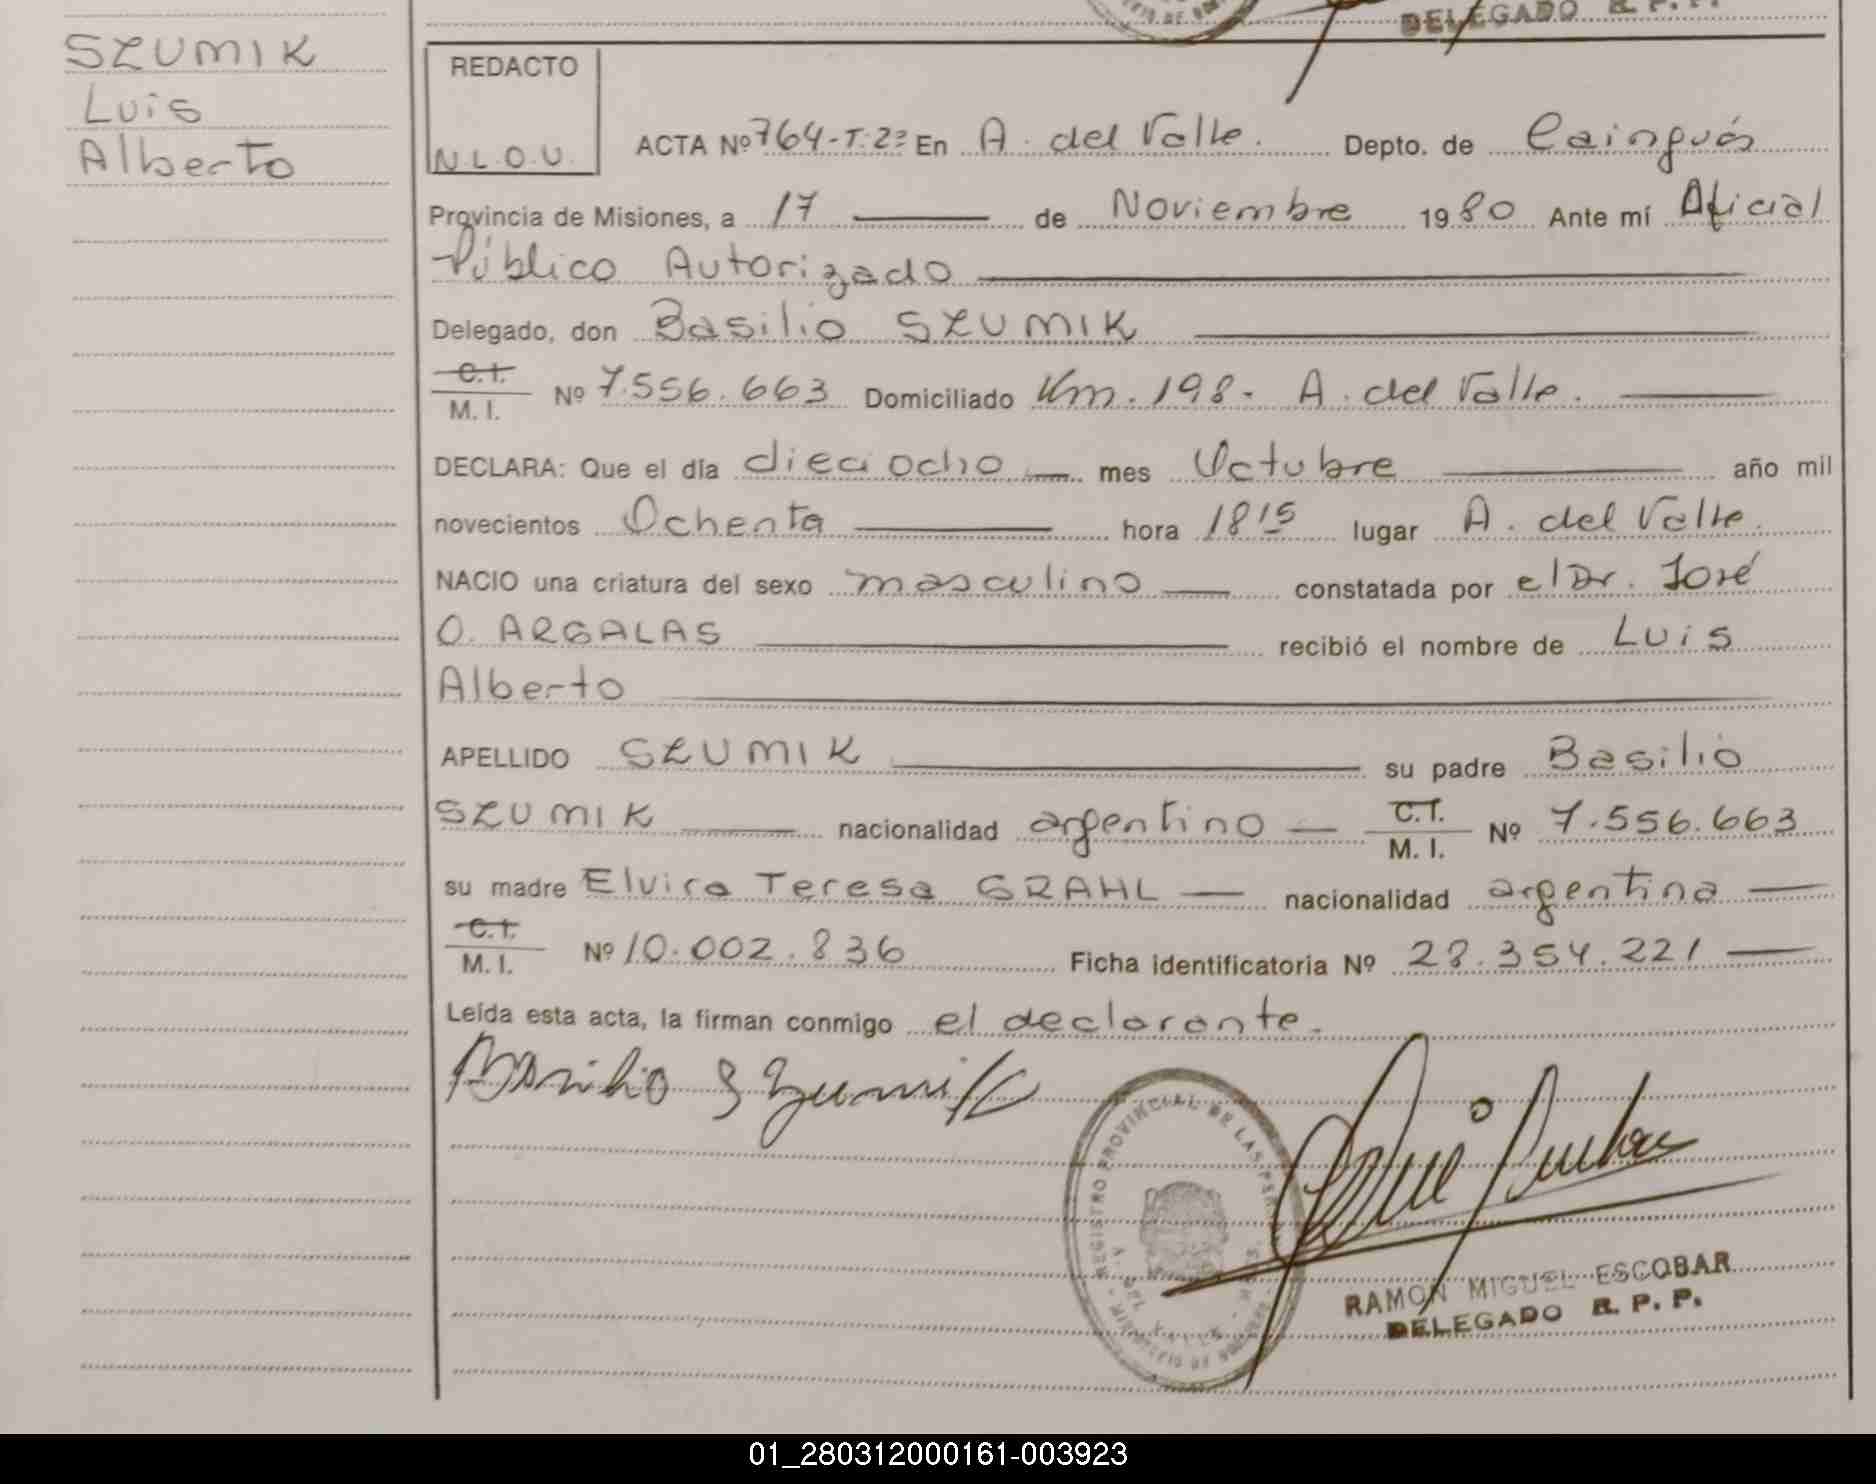 DELEGADO R. P. P.
SZUMIK
Luis
Alberto
REDACTO
N.L.O.U.
ACTA Nº 764-T.2º En A. del Valle. Depto. de Cainguás
Provincia de Misiones, a 17 de Noviembre 1980 Ante mí Oficial
Público Autorizado
Delegado, don Basilio SZUMIK
C.I. M. I. Nº 7.556.663 Domiciliado Km. 198- A. del Valle.
DECLARA: Que el día dieciocho mes Octubre año mil
novecientos Ochenta hora 18 15 lugar A. del Valle.
NACIO una criatura del sexo masculino constatada por el Dr. José
O. ARGALAS recibió el nombre de Luis
Alberto
APELLIDO SZUMIK su padre Basilio
SZUMIK nacionalidad argentino C.I. M. I. Nº 7.556.663
su madre Elvira Teresa GRAHL nacionalidad argentina
C.I. M. I. Nº 10.002.836 Ficha identificatoria Nº 28.354.221
Leída esta acta, la firman conmigo el declarante.
Basilio Szumik
REGISTRO PROVINCIAL DE LAS
RAMON MIGUEL ESCOBAR
DELEGADO R. P. P.
01_280312000161-003923